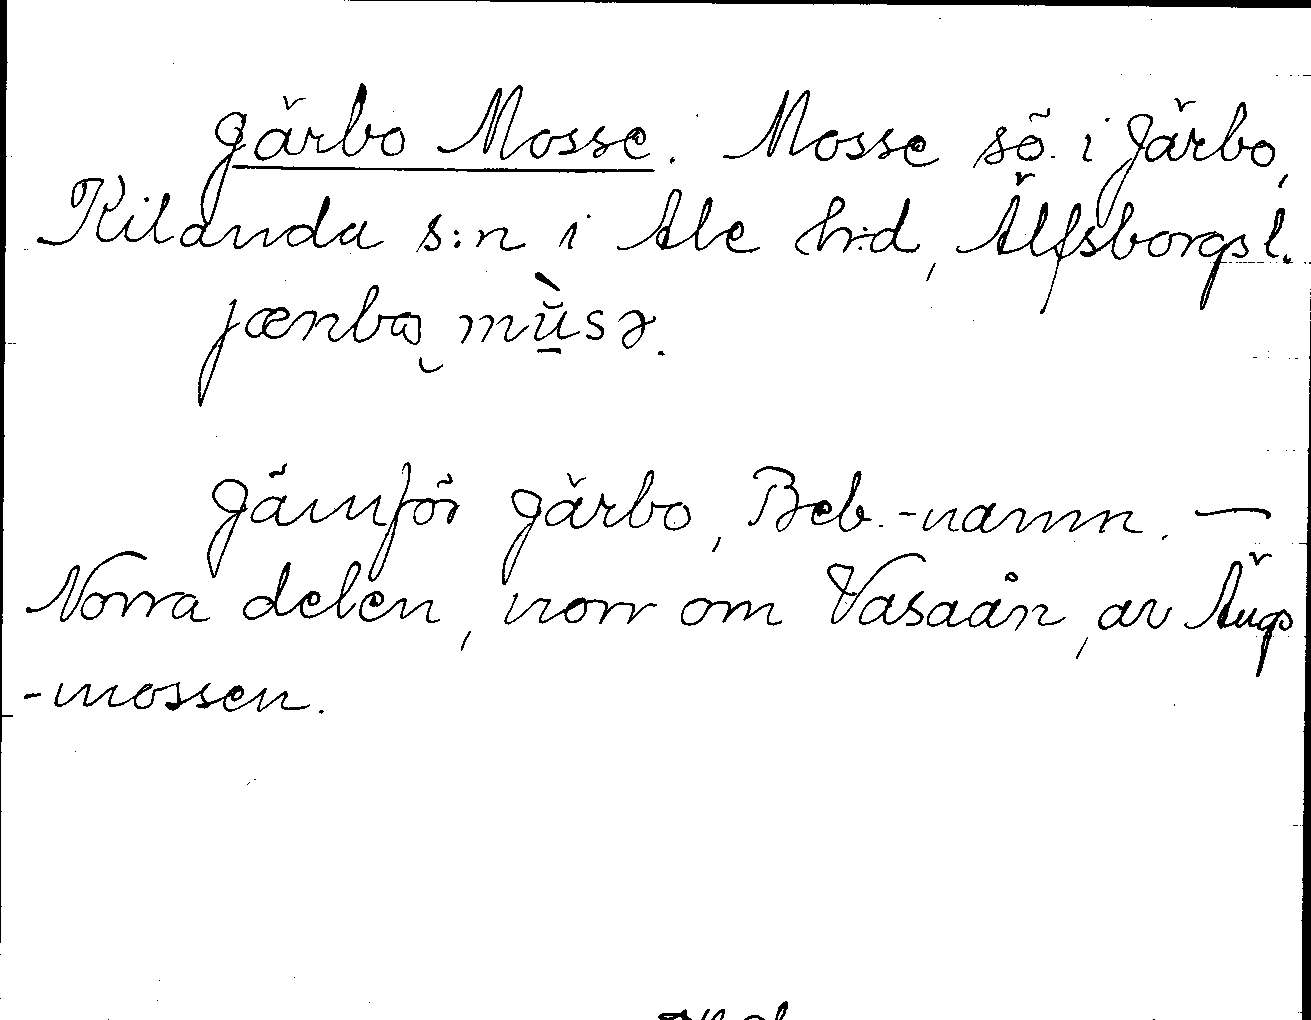 Järbo Mosse. Mosse sö. i Järbo,
Kilanda s:n i Ale h:d, Älfsborgs l.
jænbo mùsə.
Jämför Järbo, Beb.-namn. —
Norra delen, norr om Vasaån, av Ängs
-mossen.